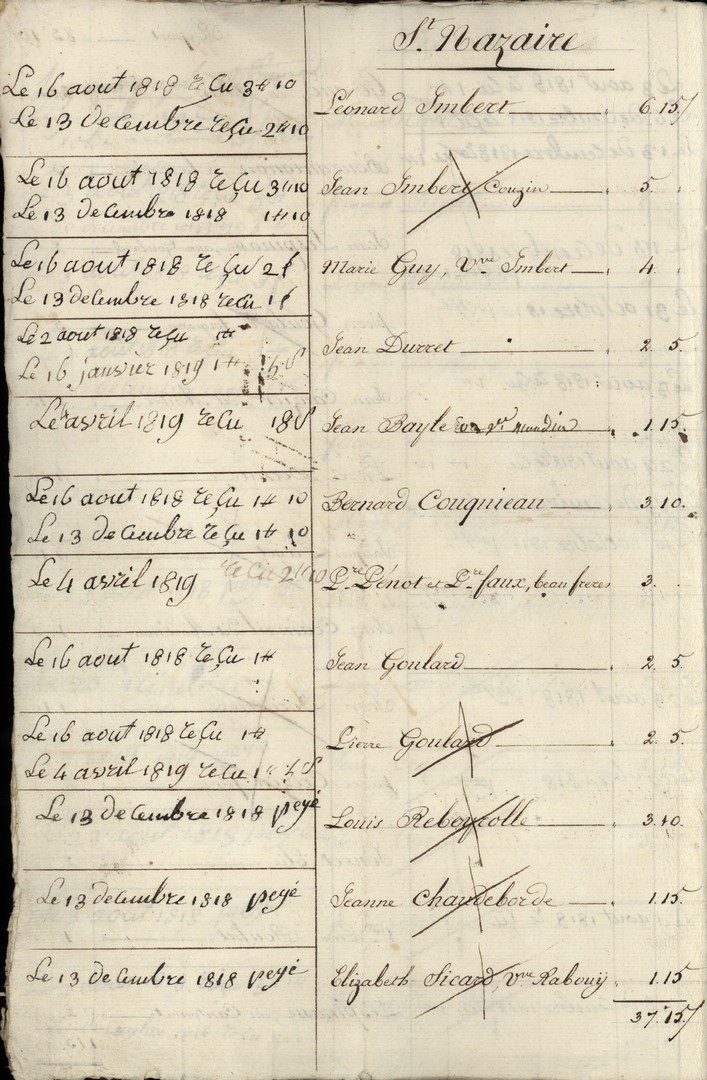 St. Nazaire
Le 16 aout 1818 reçu 3# 10
Le 13 decembre reçu 2# 10
Léonard Imbert 6. 15
Le 16 aout 1818 reçu 3# 10
Le 13 decembre 1818 1# 10
Jean Imbert Couzin 5.
Le 16 aout 1818 reçu 2#
Le 13 decembre 1818 reçu 1#
Marie Guy, Vve Imbert 4.
Le 2 aout 1818 reçu 1#
Le 16 janvier 1819 1# 5 s
Jean Durret 2. 5.
Le 4 avril 1819 reçu 18 s
Jean Bayle 1. 15.
Le 16 aout 1818 reçu 1# 10
Le 13 decembre reçu 1# 10
Bernard Cougnieau 3. 10.
Le 4 avril 1819 reçu 2# 10
Pre Pénot et Pre faux, beaufreres 3.
Le 16 aout 1818 reçu 1#
Jean Goulard 2. 5
Le 16 aout 1818 reçu 1#
Le 4 avril 1819 reçu 1# 5 s
Pierre Goulard 2. 5.
Le 13 decembre 1818 peyé
Louis Reboyrolle 3. 10.
Le 13 decembre 1818 peyé
Jeanne Chaudeborde 1. 15.
Le 13 decembre 1818 peyé
Elizabeth Sicard, Vve Rabouÿ 1. 15
37. 15